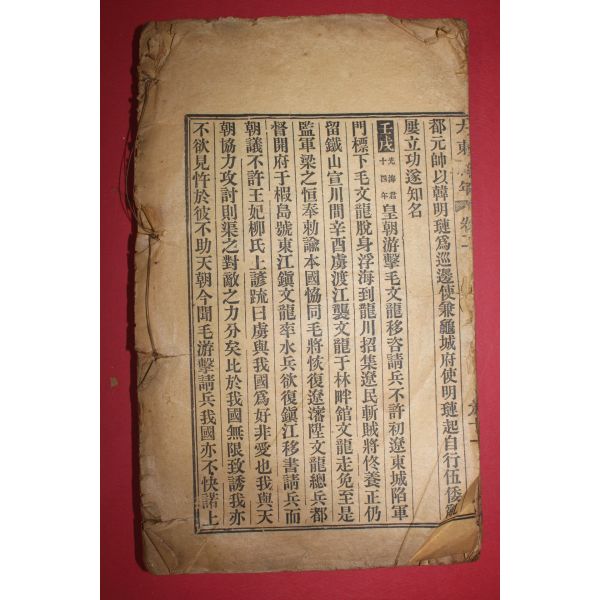 大東
年
卷二
都元帥以韓明璉爲巡邊使兼龜城府使明璉起自行伍倭亂
屢立功遂知名
壬戌光海君十四年皇朝游擊毛文龍移咨請兵不許初遼東城陷軍
門標下毛文龍脫身浮海到龍川招集遼民斬賊將佟養正仍
留鐵山宣川間辛酉虜渡江襲文龍于林畔舘文龍走免至是
監軍梁之恒奉勅諭本國恊同毛將恢復遼瀋陞文龍總兵都
督開府于椵島號東江鎭文龍率水兵欲復鎭江移書請兵而
朝議不許王妃柳氏上諺疏曰虜與我國爲好非愛也我與天
朝協力攻討則渠之對敵之力分矣比於我國無限致誘我亦
不欲見忤於彼不助天朝今聞毛游擊請兵我國亦不快諾上